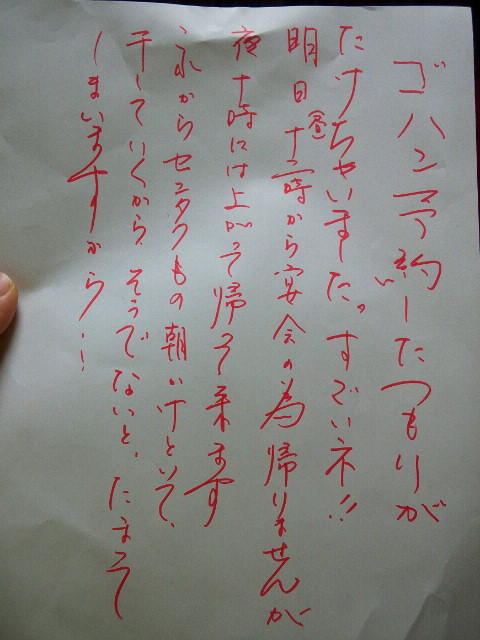 ゴハン予約したつもりが
たけちゃいました。すごいネ!!
明日昼十二時から宴会の為帰りませんが
夜十時には上がって帰って来ます
からセンタクもの朝かけといて、
干していくから、そうでないと、たまって
しまいますから!!